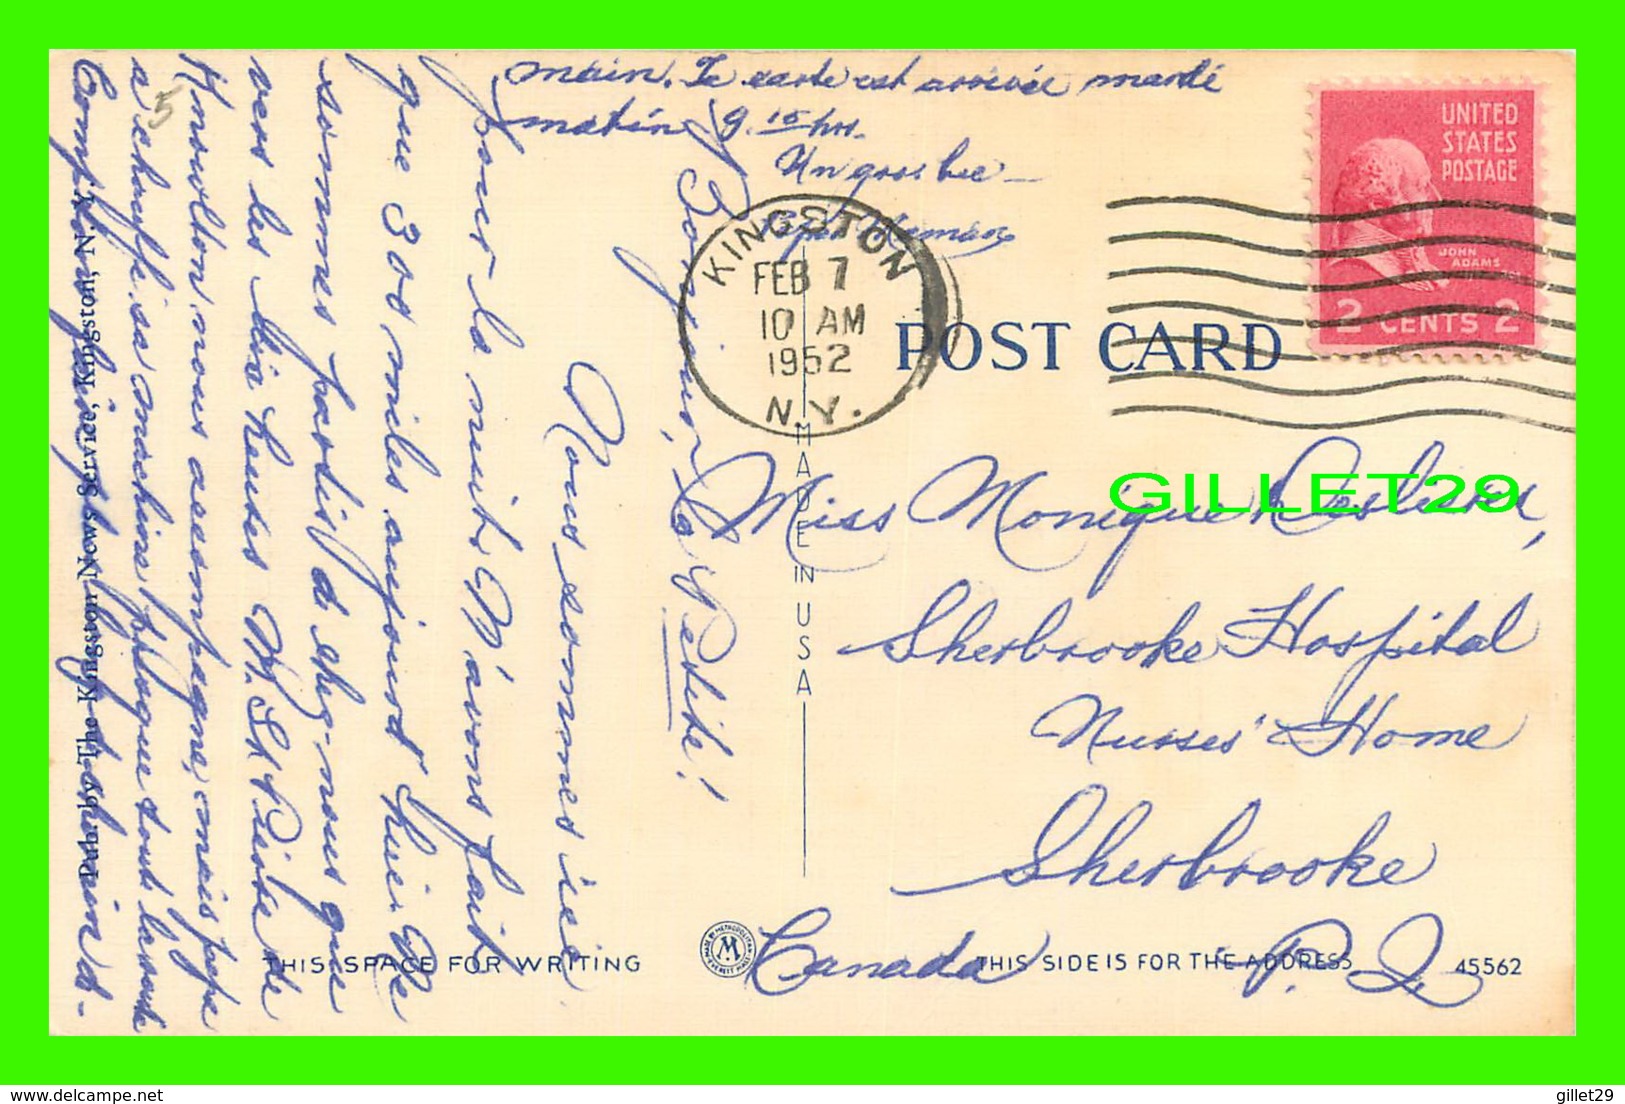 Bonjour, la Petite!
Nous sommes ici
pour la nuit. N'avons fait
que 300 miles aujourd'hui. Ne
sommes partis d
que
vers les
heures. M. St Pierre de
Knowlton nous accompagne, mais papa
a chauffé sa machine presque tout le
main. Ta carte est arrivée mardi
matin 9.15 hrs.
Un gros bec —
Papa Maman
KINGSTON
FEB 7
10 AM
1952
N.Y.
UNITED
STATES
POSTAGE
JOHN
ADAMS
2 CENTS 2
POST CARD
MADE IN USA
GILLET29
Miss Monique
Sherbrooke Hospital
Nurses' Home
Sherbrooke
Canada P. Q.
THIS SPACE FOR WRITING
THIS SIDE IS FOR THE ADDRESS
45562
MADE BY METROPOLITAN
M
EVERETT MASS
Pub. by The Kingston News Service, Kingston, N. Y.
5
delcampe.net
gillet29